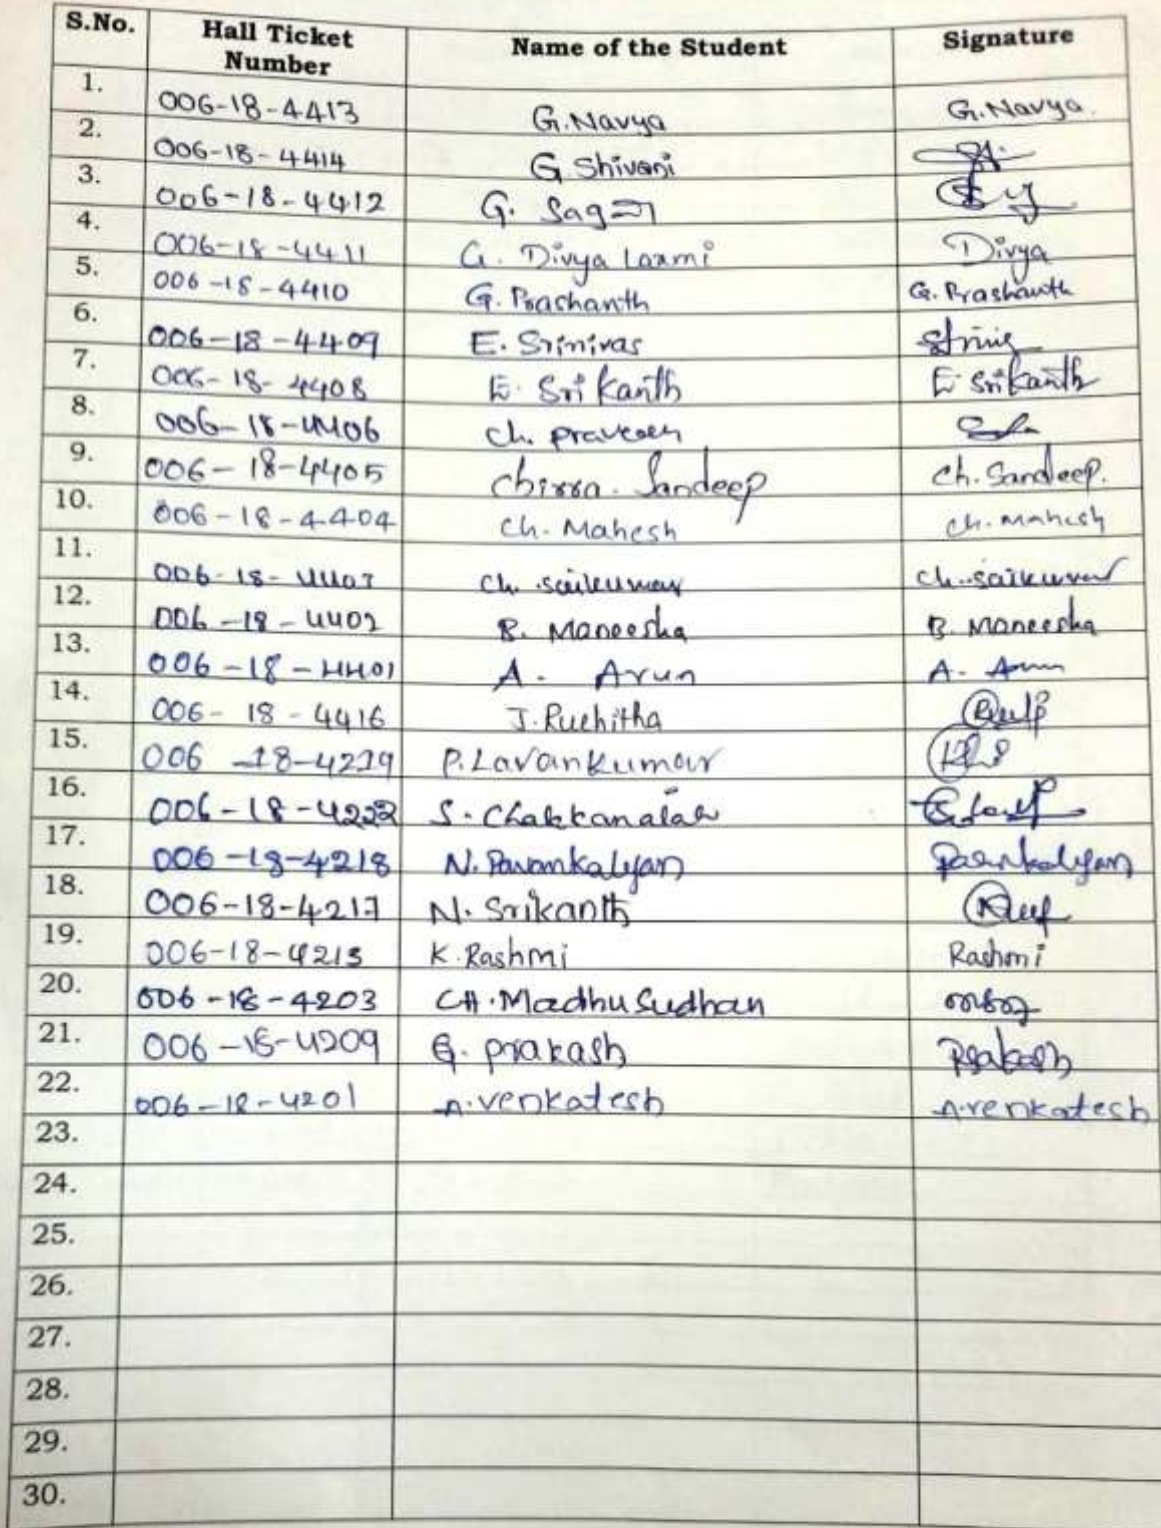 S.No. Hall Ticket Number Name of the Student Signature
1. 006-18-4413 G.Navya G.Navya.
2. 006-18-4414 G Shivani
3. 006-18-4412 G. Sagar
4. 006-18-4411 G. Divya Laxmi Divya
5. 006-18-4410 G. Prashanth G. Prashanth
6. 006-18-4409 E. Srinivas
7. 006-18-4408 E. Srikanth E Srikanth
8. 006-18-4406 Ch. praveen
9. 006-18-4405 Chirra. Sandeep Ch. Sandeep.
10. 006-18-4404 Ch. Mahesh Ch. Mahesh
11. 006-18-4403 Ch. saikumar Ch. saikumar
12. 006-18-4402 B. Maneesha B. Maneesha
13. 006-18-4401 A. Arun A. Arun
14. 006-18-4416 J.Ruchitha
15. 006-18-4219 P.Lavankumar
16. 006-18-4222 S.
17. 006-18-4218 N. Pavankalyan Pavankalyan
18. 006-18-4217 N. Srikanth
19. 006-18-4213 K.Rashmi Rashmi
20. 006-18-4203 CH.Madhu Sudhan
21. 006-18-4209 G. prakash Prakash
22. 006-18-4201 A.venkatesh A.venkatesh
23.
24.
25.
26.
27.
28.
29.
30.